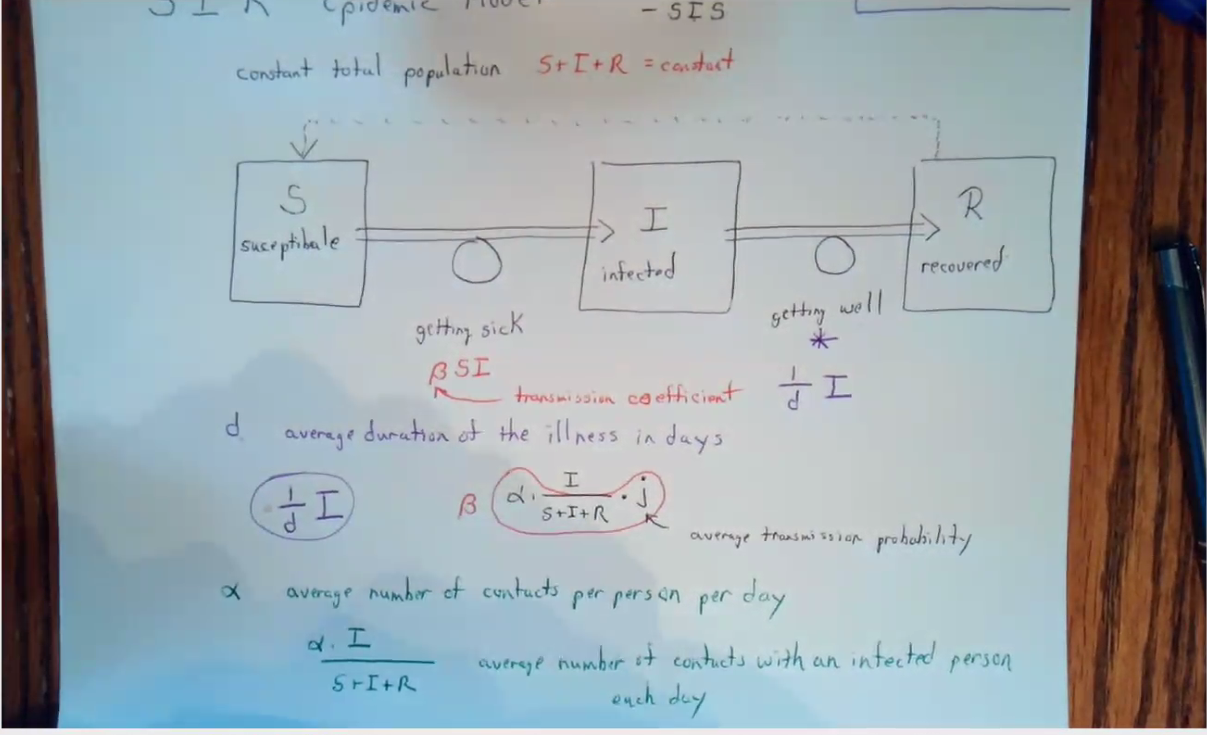 SIR Epidemic Model
- SIS
constant total population S+I+R = constact
S
suceptibale
I
infected
R
recovered
getting sick
getting well
*
β SI
transmission coefficient
1/d I
d average duration of the illness in days
1/d I
β α · I/(S+I+R) · j
average transmission probability
α average number of contacts per person per day
α · I/(S+I+R) average number of contacts with an infected person
each day